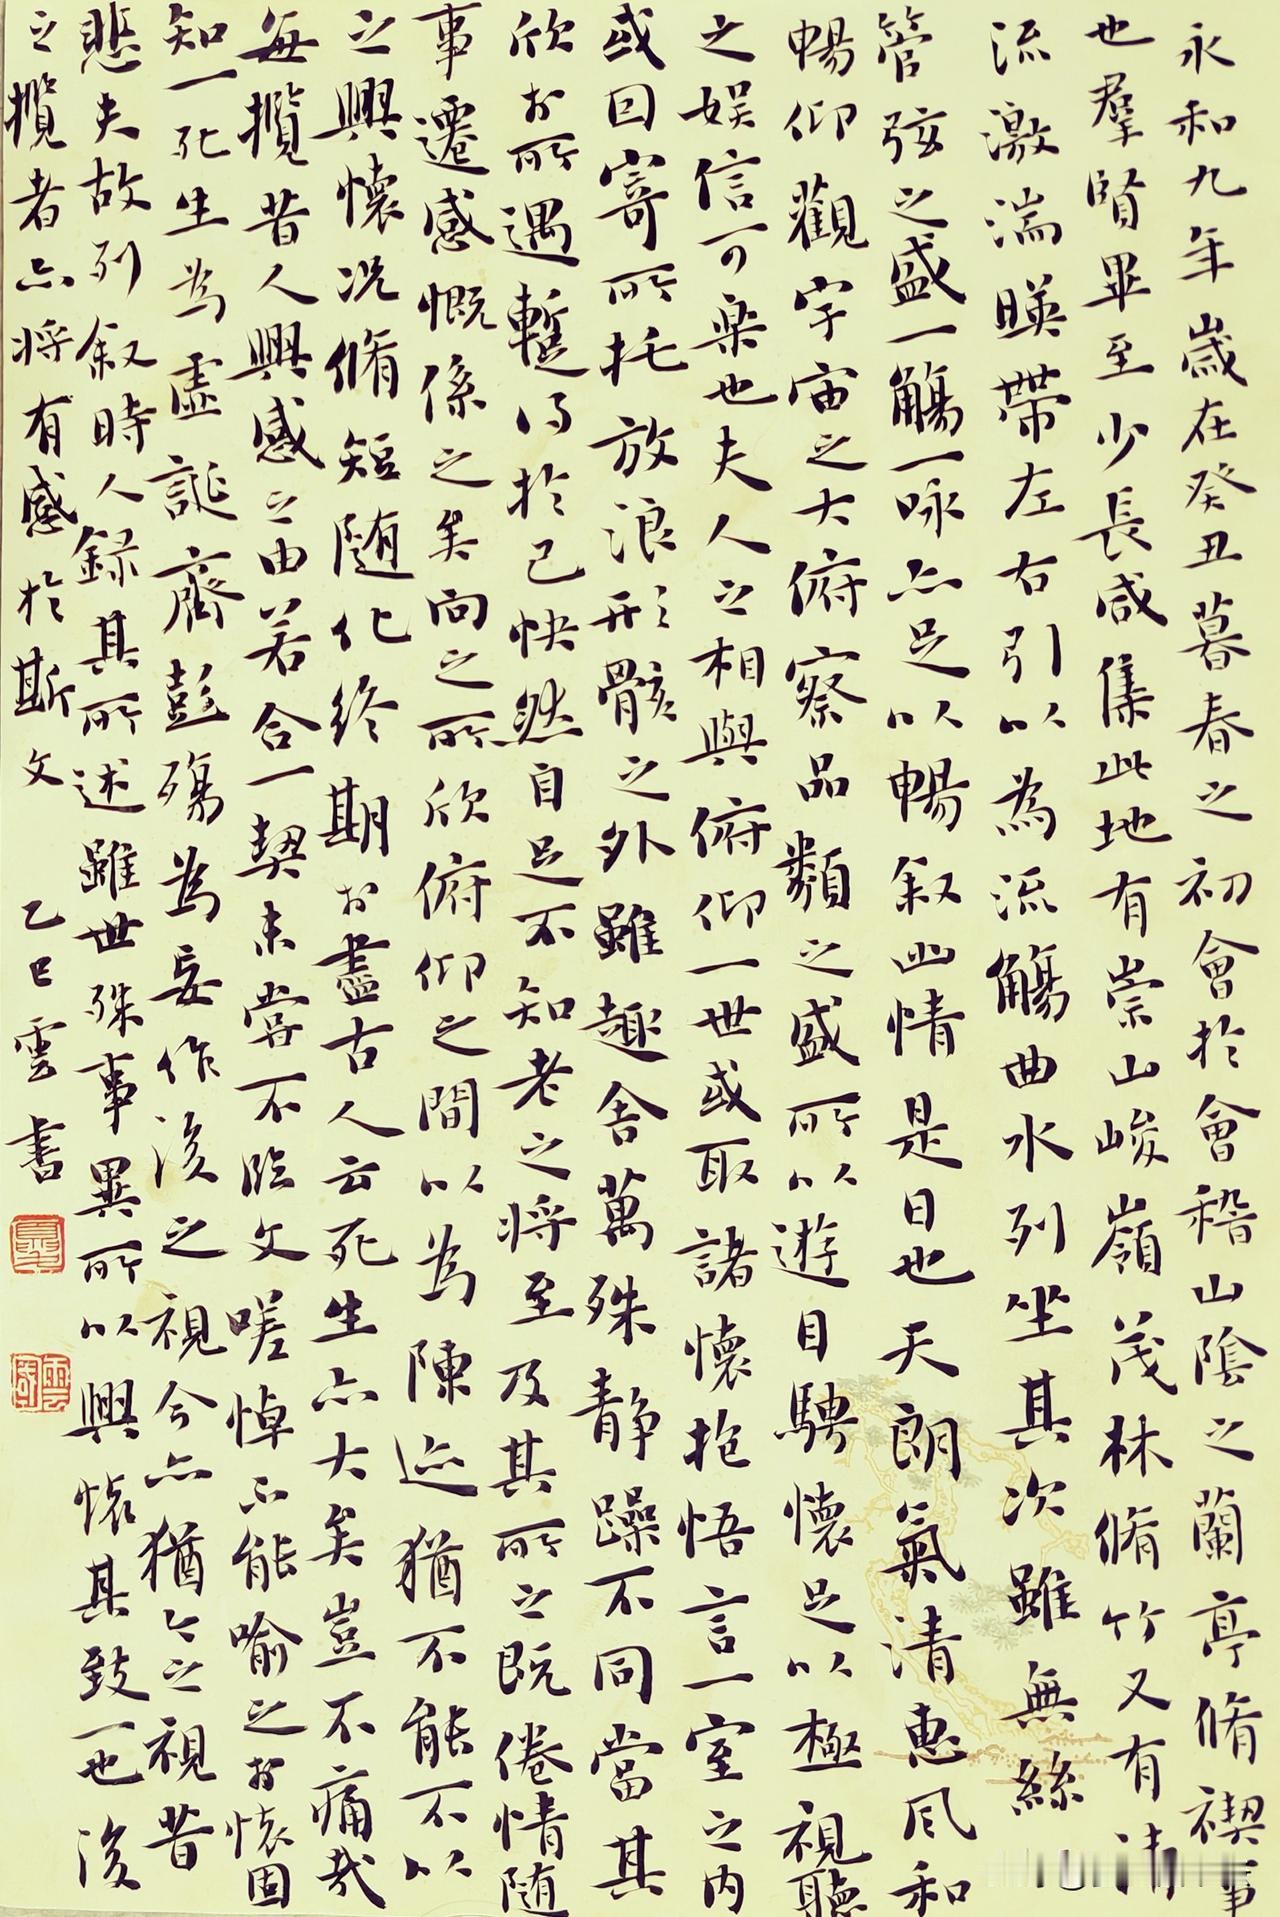 永和九年歲在癸丑暮春之初會於會稽山陰之蘭亭脩禊事
也羣賢畢至少長咸集此地有崇山峻嶺茂林脩竹又有清
流激湍暎帶左右引以為流觴曲水列坐其次雖無絲
管弦之盛一觴一咏亦足以暢叙幽情是日也天朗氣清惠風和
暢仰觀宇宙之大俯察品類之盛所以遊目騁懷足以極視聽
之娛信可樂也夫人之相與俯仰一世或取諸懷抱悟言一室之內
或因寄所托放浪形骸之外雖趣舍萬殊静躁不同當其
欣於所遇暫得於己快然自足不知老之將至及其所之既倦情随
事遷感慨係之矣向之所欣俯仰之間以為陳迹猶不能不以
之興懷況脩短随化終期於盡古人云死生亦大矣豈不痛哉
每攬昔人興感之由若合一契未嘗不臨文嗟悼不能喻之於懷固
知一死生為虛誕齊彭殤為妄作後之視今亦猶今之視昔
悲夫故列叙時人録其所述雖世殊事異所以興懷其致一也後
之攬者亦將有感於斯文 乙巳雲書